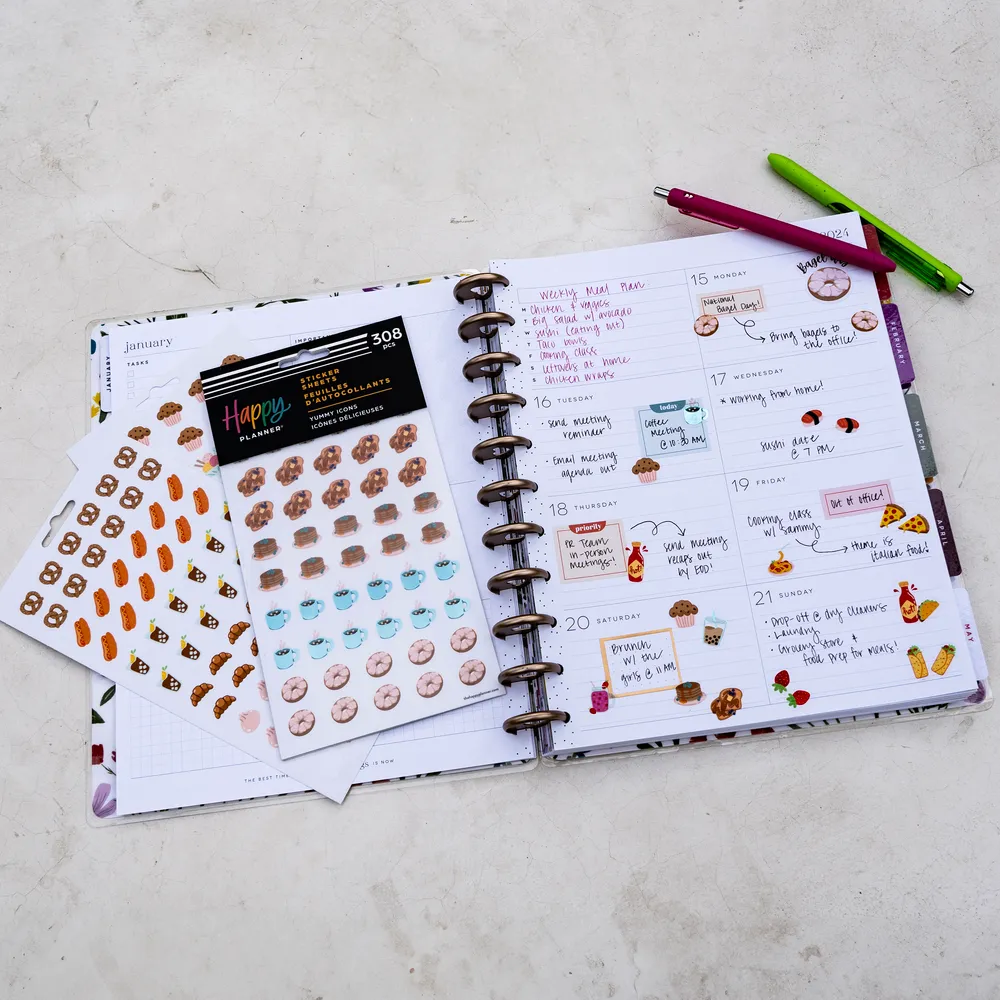 january
TASKS
JANUARY
308
pcs
STICKER
SHEETS
FEUILLES
D'AUTOCOLLANTS
Happy
PLANNER®
YUMMY ICONS
ICÔNES DÉLICIEUSES
THE BEST TIME
IS NOW
2024
Weekly Meal Plan
M Chicken & veggies
T Big Salad w/ avocado
W sushi (eating out)
T Taco bowls
F Cooking class
S leftovers at home
S Chicken wraps
15 MONDAY
Bagel
National
Bagel Day!
Bring bagels to
the office!
16 TUESDAY
· send meeting
reminder
· Email meeting
agenda out
today
Coffee
Meeting
@ 10:30 AM
17 WEDNESDAY
* working from home!
sushi date
@ 7 PM
18 THURSDAY
priority
PR Team
in-person
meetings!
hot!
send meeting
recaps out
by EOD!
19 FRIDAY
Out of office!
Cooking class
w/ Sammy
theme is
italian food!
20 SATURDAY
Brunch
w/ the
girls @ 11 AM
21 SUNDAY
· Drop-off @ dry cleaners
· Laundry
· Grocery store +
food prep for meals!
FEBRUARY
MARCH
APRIL
MAY